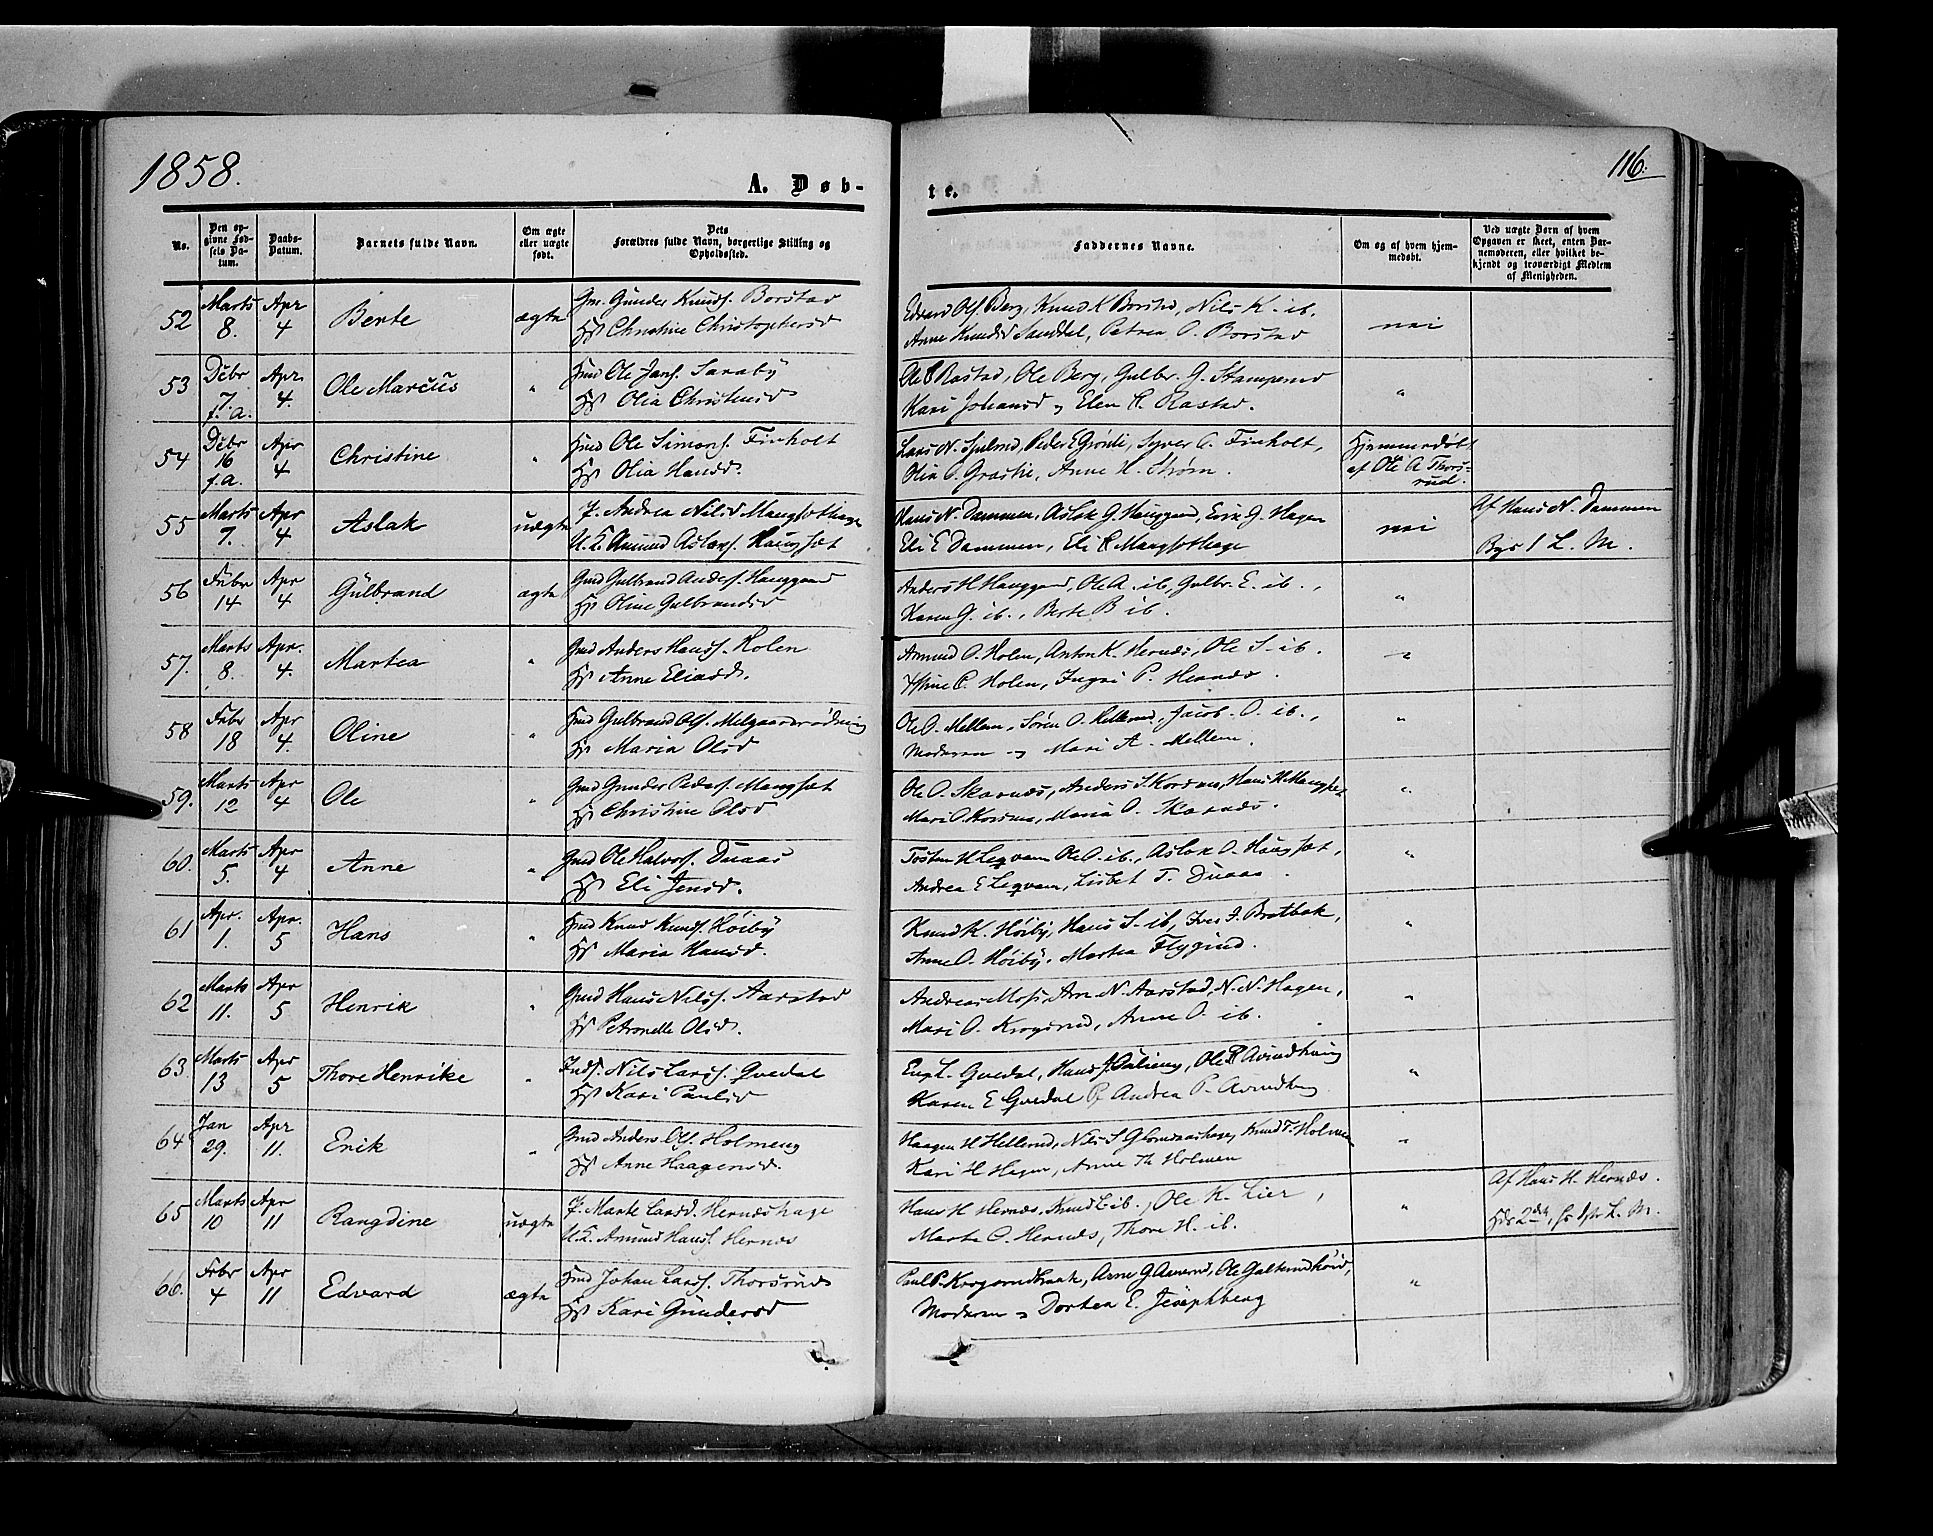 1858.
A. Døb-
te.
116.
No.
Den op-
givne Fød-
sels Da-
tum.
Daabs-
Datum.
Barnets fulde Navn.
Om ægte
eller uægte
født.
Dets
Forældres fulde Navn, borgerlige Stilling og
Opholdssted.
Faddernes Navne.
Om og af hvem hjem-
medøbt.
Ved uægte Børn af hvem
Opgaven er skeet, enten Bar-
nemoderen, eller hvilket be-
kjendt og troværdigt Medlem
af Menigheden.
52 Marts 8. Apr 4 Berte ægte
Gm. Gunder Knuds. Borstad
Christine Christophersd
Edvard Ols. Berg, Knud K Borstad, Nils K. ib.
Anne Knudsd Sanddal, Petrea O. Borstad
nei
53 Debr 7. f. a. Apr. 4. Ole Marcus "
Hmd Ole Jans. Saraby
Olia Christensd
Ole Rastad, Ole Berg, Gulbr. G. Stamperud
Kari Johansd og Elen K. Rastad.
"
54 Debr 16 f. a. Apr 4 Christine "
Hmd Ole Simens. Finholt
Olia Hansd.
Lars N. Sjulerud, Peder E Grønli, Syver O. Finholt,
Olia O. Grastie, Anne H. Strøm.
Hjemmedøbt
af Ole A Thors-
rud.
55 Marts 7. Apr 4 Aslak uægte
P. Andrea Nilsd Mangsethage
U. K. Amund Aslaks. Haugset
Hans N. Dammen, Aslak G. Hauggaard, Erik G. Hagen
Eli E Dammen, Eli Mangsethage
nei
Af Hans N. Dammen
Bgs 1 L. M.
56 Febr 14 Apr 4 Gulbrand ægte
Gmd Gulbrand Anders. Hauggaard
Oline Gulbrandsd
Anders H Hauggaard, Ole A. ib, Gulbr. E. ib.,
Karen G. ib., Berte B ib.
"
57. Marts 8. Apr. 4. Martea "
Gmd Anders Hans. Holen
Anne Eliasd.
Amund O. Holen, Anton K. Hernæs, Ole S. ib.
Stine C. Holen, Ingri P. Hernæs.
"
58 Febr 18 Apr 4. Oline "
Hmd Gulbrand Ols. Melgaardsrødning
Maria Olsd
Ole O. Mellem, Søren O. Hellerud, Jacob O. ib.,
Moderen og Mari A. Mellem.
"
59. Marts 12 Apr 4 Ole "
Gmd Gunder Peders. Mangset
Christine Olsd
Ole O. Skarnæs, Anders S. Korsmo, Hans H Mangset
Mari O. Korsmo, Maria O. Skarnæs.
"
60. Marts 5. Apr 4 Anne "
Gmd Ole Halvors. Duaas
Eli Jensd.
Tosten H Leqvam Ole O. ib., Aslak O. Haugset,
Andrea E Leqvam, Lisbet T. Duaas.
"
61 Apr. 1. Apr. 5 Hans "
Hmd Knud Knuds. Høiby
Maria Hansd.
Knud K. Høiby, Hans S. ib, Iver J. Bratbak,
Anne O. Høiby, Martea Flygind.
"
62 Marts 11. Apr 5 Henrik "
Gmd Hans Nils. Aarstad
Petronelle Olsd.
Andreas Mosi, Arn N. Aarstad, N. N. Hagen,
Mari O. Krogsrud, Anne O. ib.
"
63 Marts 13 Apr 5 Thore Henrike "
Inds. Nils Lars. Qvedal
Kari Paulsd
Eng L. Qvedal, Hans J. Julieng, Ole R Avindhaug
Karen E Qvedal Andrea P. Avindhaug
"
64 Jan 29. Apr 11. Erik "
Gmd Anders Ols. Holmeng
Anne Haagensd.
Haagen H Hellerud, Nils S Glomsaashage, Knud T. Holmen
Kari H Hagen, Anne Th Holmen
"
65 Marts 10 Apr 11 Rangdine uægte
P. Marte Larsd. Hernæshage
U. K. Amund Hans. Hernæs
Hans H Hernæs, Knud L ib., Ole K. Lier,
Marte O. Hernæs, Thore H. ib.
"
Af Hans H. Hernæs.
Hds 2det, hs 1ste L. M.
66. Febr 4 Apr 11 Edvard ægte
Hmd Johan Lars. Thorsrud
Kari Gundersd
Paul P. Krogsrudbraate, Arne G Aaserud, Ole Galterudhøid,
Moderen og Dortea E. Josephberg
"